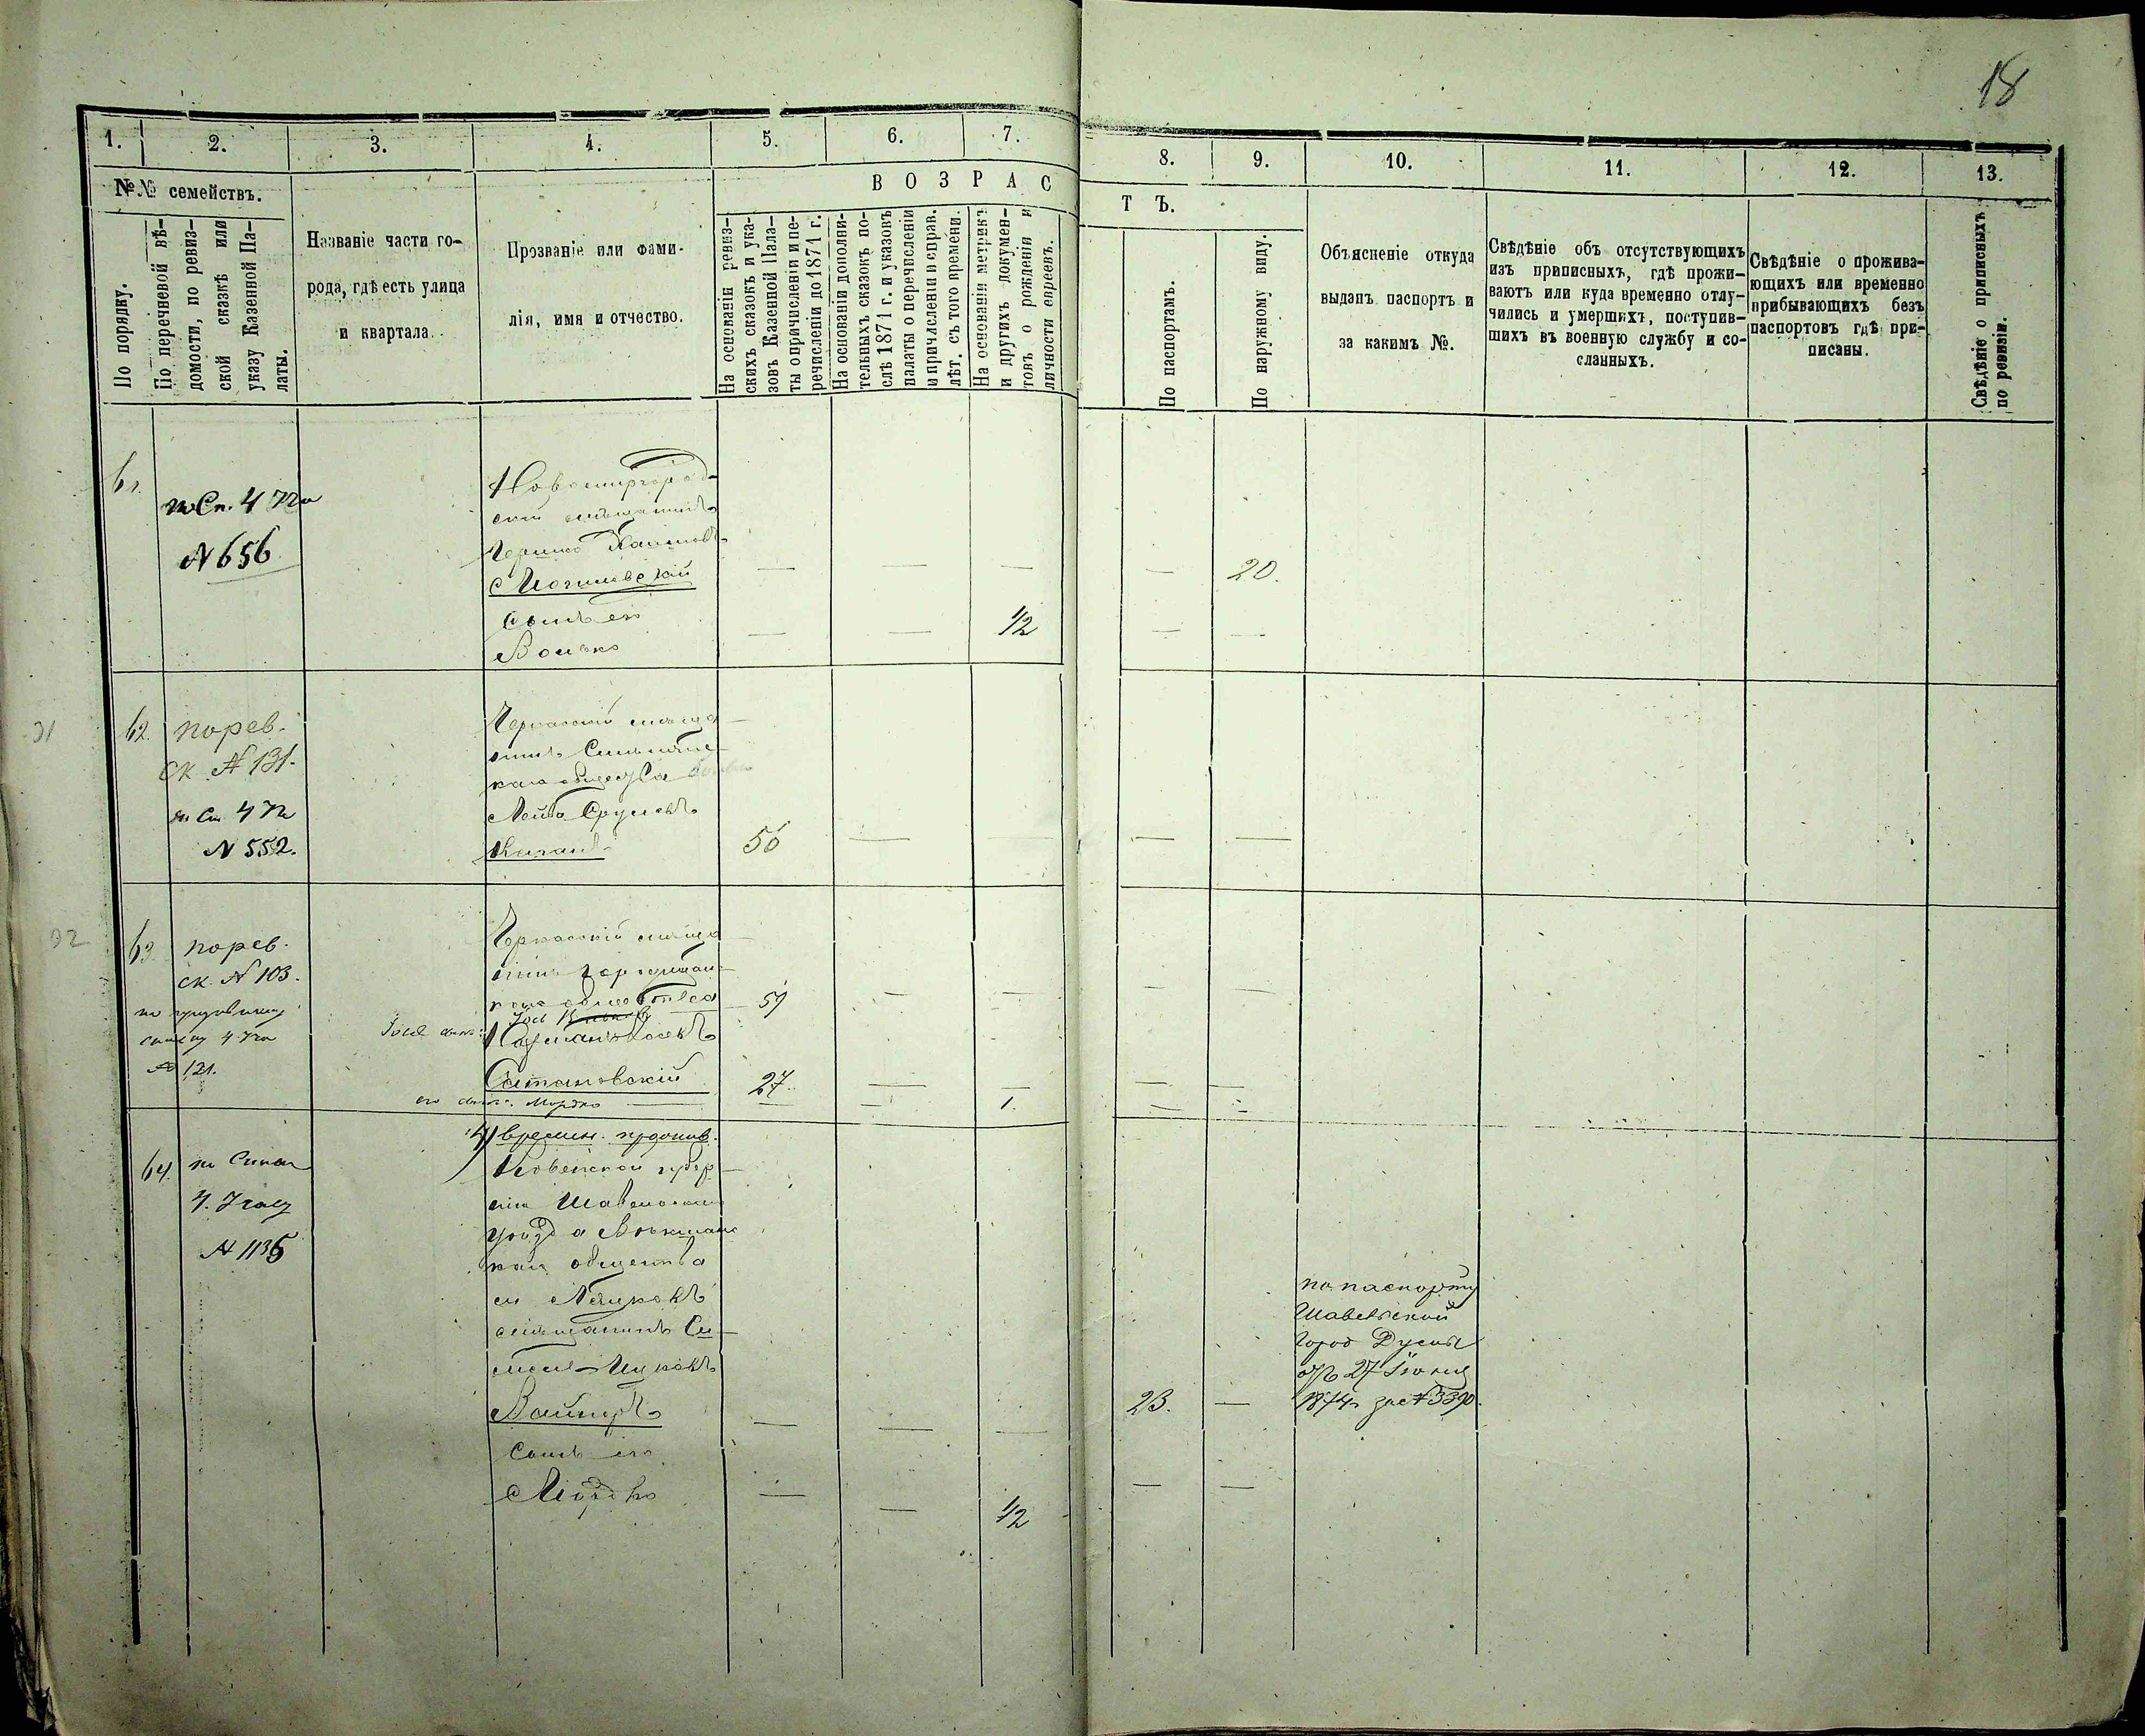 18
1.
2.
3.
4.
5.
6.
7.
8.
9.
10.
11.
12.
13.
№№ семействъ.
По порядку.
По перечневой вѣ-
домости, по ревиз-
ской сказкѣ или
указу Казенной Па-
латы.
Названіе части го-
рода, гдѣ есть улица
и квартала.
Прозваніе или фами-
лія, имя и отчество.
ВОЗРАС
ТЪ.
На основаніи ревиз-
скихъ сказокъ и ука-
зовъ Казенной Пала-
ты о причисленіи и пе-
речисленіи до 1871 г.
На основаніи дополни-
тельныхъ сказокъ по-
слѣ 1871 г. и указовъ
палаты о перечисленіи
и причисленіи и справ.
лѣт. съ того времени.
На основаніи метрикъ
и другихъ докумен-
товъ о рожденіи и
личности евреевъ.
По паспортамъ.
По наружному виду.
Объясненіе откуда
выданъ паспортъ и
за какимъ №.
Свѣдѣніе объ отсутствующихъ
изъ приписныхъ, гдѣ прожи-
ваютъ или куда временно отлу-
чились и умершихъ, поступив-
шихъ въ военную службу и со-
сланныхъ.
Свѣдѣніе о прожива-
ющихъ или временно
прибывающихъ безъ
паспортовъ гдѣ при-
писаны.
Свѣдѣніе о приписныхъ
по ревизіи.
61.
по Сп. 4
N 656
Новомиргород-
скій мѣщанинъ
Могилевскій
20.
Сынъ его
Волько
1/2
31
62.
по рев.
ск. N 131.
по Сп. 4
N 552.
Черкасскій мѣща-
нинъ
Лейба Сруловъ
56
32
63.
по рев.
ск. N 103.
4
N 121.
Черкасскій мѣща-
нинъ
каго общества
59
Сатановскій
27.
его сынъ: Мордко
1.
4) времен. прожив.
64.
по Списк
4.
N 1135
Ковенской губер-
ніи Шавельскаго
уѣзда
каго общества
мѣщанинъ
Ицковъ
23.
по паспорту
Шавельской
Город Думы
отъ 27 Іюня
1874 за N 3390.
Сынъ его
Мордко
1/2